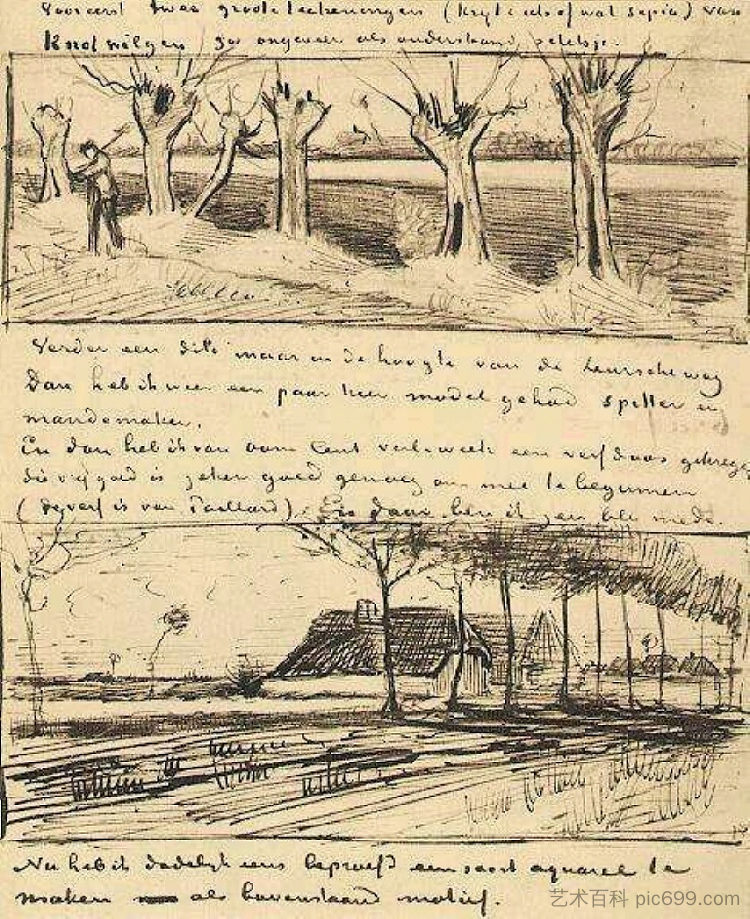 Vooreerst twee groote teekeningen (krijt & als of wat sepia) van
Knotwilgen zoo ongeveer als onderstaand
Verder een dito maar in de hoogte van de Leursche weg
Dan heb ik weer een paar keer model gehad spitter en
mandemaker.
En dan heb ik van oom Cent verl. week een verfdoos gekregen
die vrij goed is zeker goed genoeg om mee te beginnen
(de verf is van Paillard). En daar ben ik zeer blij mede.
Nu heb ik dadelijk eens beproefd een soort aquarel te
maken als bovenstaand motief.
艺术百科 pic699.com